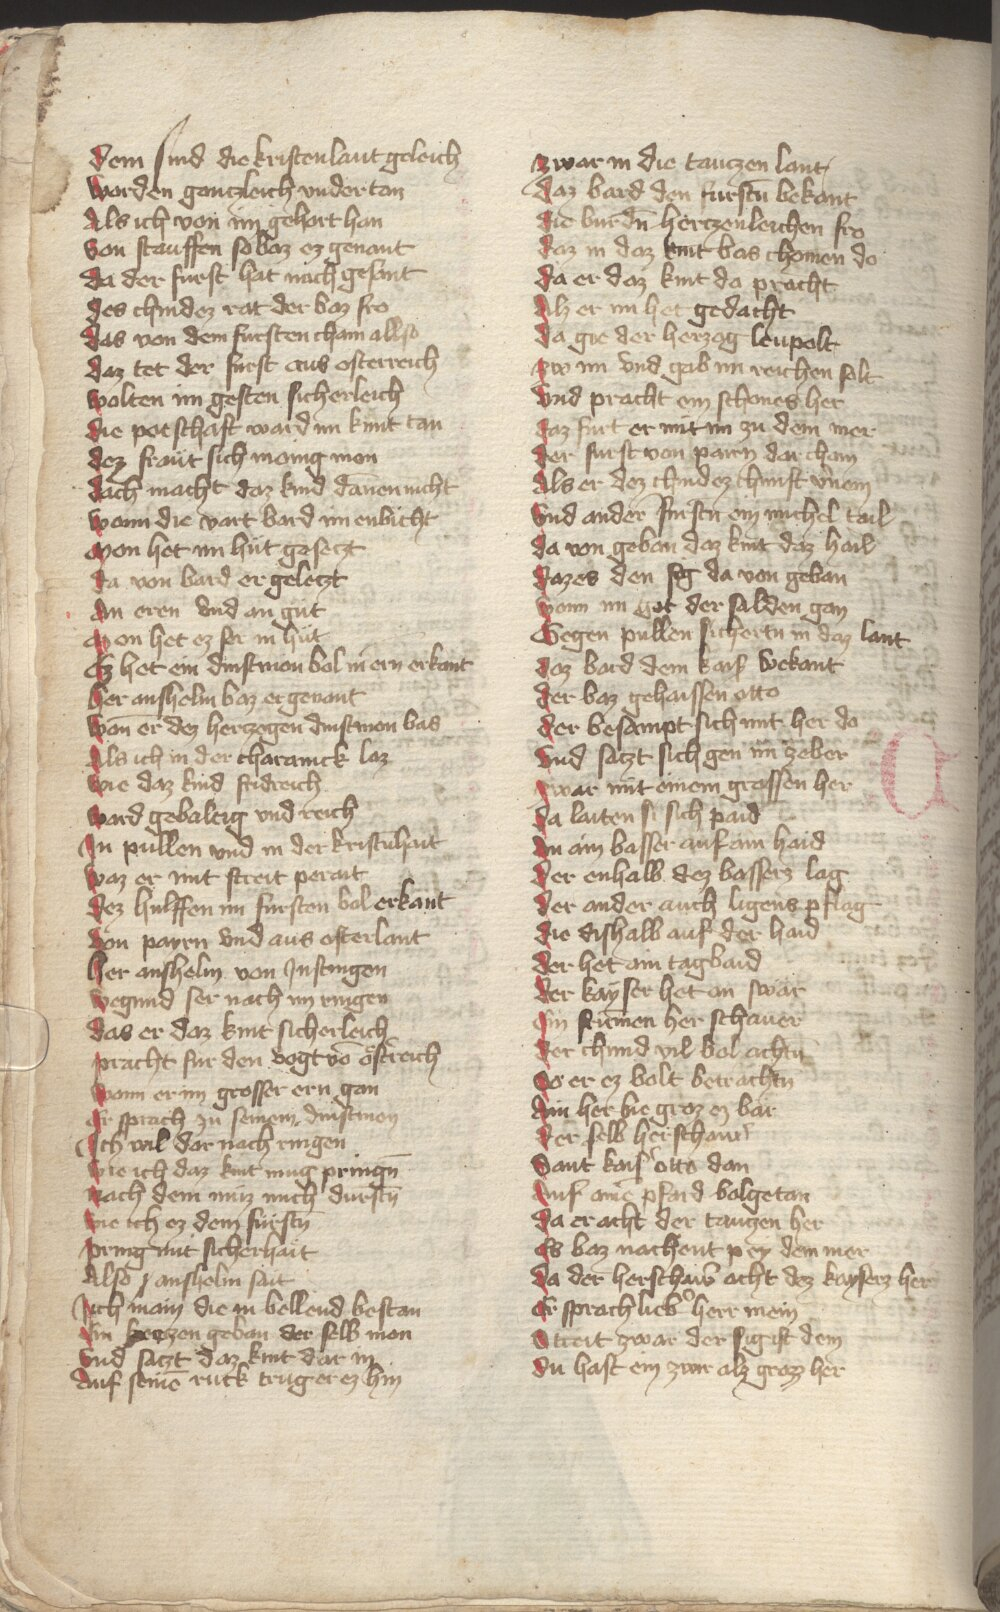 Dem sind die kristen laut geleich
Worden gantzleich vndertan
Als ich von im gehort han
Von stauffen so baz ez genant
Da der furst hat nach gesant
Des chindez rat der baz fro
Das von dem fursten cham allso
Daz tet der furst aus osterreich
Wolten im gesten sicherleich
Die potschaft ward im kunt tan
Dez fraut sich monig mon
Dach macht daz kind dannen nicht
Wann die vart bard im enbicht
Mon het im hut gesetzt
Da von bard er geletzt
An eren vnd an gut
Mon het ez ser in hut
Ez het ein dinstmon bol in ern erkant
Her anshelm baz er genant
Wan er dez hertzogen dinstmon bas
Als ich in der charanick laz
Wie daz kind fridreich
Ward gebaltig vnd reich
In pullen vnd in der kristnhait
Waz er mit streit perait
Dez hulffen im fursten bol erkant
Von payrn vnd aus osterlant
Her anshelm von Justingen
Begund ser nach im ringen
Das er daz kint sicherleich
Pracht fur den vogt vo osterreich
Wann er im grosser ern gan
Er sprach zu seinem dinstmon
Ich wil dar nach ringen
Wie ich daz kint mug pringn
Nach dem muz mich durstn
Wie ich ez dem furstn
Pring mit sicherhait
Also anshelm sait
Ich main die in bellend bestan
Ein kretzen geban der selb mon
Vnd satzt daz kint dar in
Auf seine ruck trug er ez hin
Zwar in die tautzen lant
Daz bard den furstn bekant
Die burdn hertzenleichen fro
Daz in daz kint bas chomen do
Da er daz kint da pracht
Alz er im het gedacht
Da gie der herzog leupolt
Zw im vnd gab im reichen solt
Vnd pracht ein schones her
Daz furt er mit im zu dem mer
Der furst von pairn dar cham
Als er dez chindez chunft vernem
Vnd ander furstn ein michel tail
Da von geban daz kint daz hail
Dazes den sig da von geban
Wann im got der salden gan
Gegen pullen sichertn in daz lant
Daz bard dem kais bekant
Der baz gehaissen otto
Der besampt sich mit her do
Vnd satzt sich gen im zeber
Zwar mit einem grossen her
Da laiten si sich paid
An aim basser auf aim haid
Der enhalb dez bassers lag
Der ander auch ligens pflag
Die dishalb auf der haid
Der het aim tagbaid
Der kayser het an swar
Ein frumen her schauer
Der chund vil bol achtn
So er ez bolt betrachtn
Ain her bie groz ez bar
Der selb her schauer
Sant kais otto dan
Auf aine pfard bolgetan
Da er acht der tautzen her
Es baz nachent pey dem mer
Da der herschaur acht dez kaysers her
Er sprach lieber herr mein
Streit zwar der sig ist dein
Du hast ein zwir alz groz her